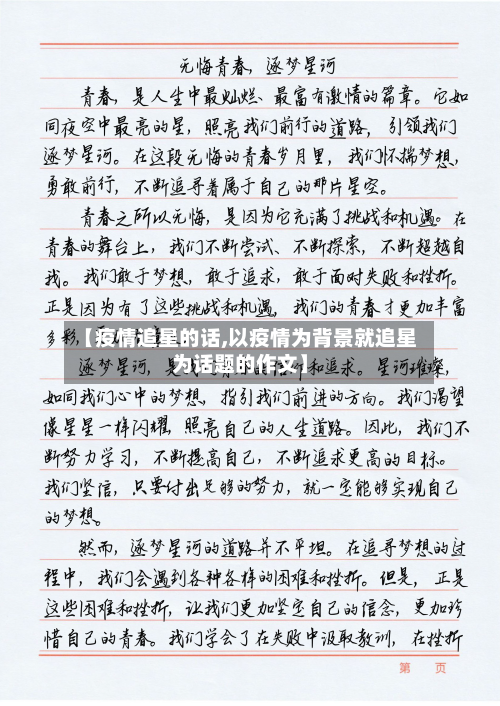 无悔青春，逐梦星河
青春，是人生中最灿烂、最富有激情的篇章。它如
同夜空中最亮的星，照亮我们前行的道路，引领我们
逐梦星河。在这段无悔的青春岁月里，我们怀揣梦想，
勇敢前行，不断追寻着属于自己的那片星空。
青春之所以无悔，是因为它充满了挑战和机遇。在
青春的舞台上，我们不断尝试、不断探索，不断超越自
我。我们敢于梦想，敢于追求，敢于面对失败和挫折。
正是因为有了这些挑战和机遇，我们的青春才更加丰富
多彩，
【疫情追星的话,以疫情为背景就追星
为话题的作文】
逐梦星河，是我
。星河璀璨，
如同我们心中的梦想，指引我们前进的方向。我们渴望
像星星一样闪耀，照亮自己的人生道路。因此，我们不
断努力学习，不断提高自己，不断追求更高的目标。
我们坚信，只要付出足够的努力，就一定能够实现自己
的梦想。
然而，逐梦星河的道路并不平坦。在追寻梦想的过
程中，我们会遇到各种各样的困难和挫折。但是，正是
这些困难和挫折，让我们更加坚定自己的信念，更加珍
惜自己的青春。我们学会了在失败中汲取教训，在挫折
第 页